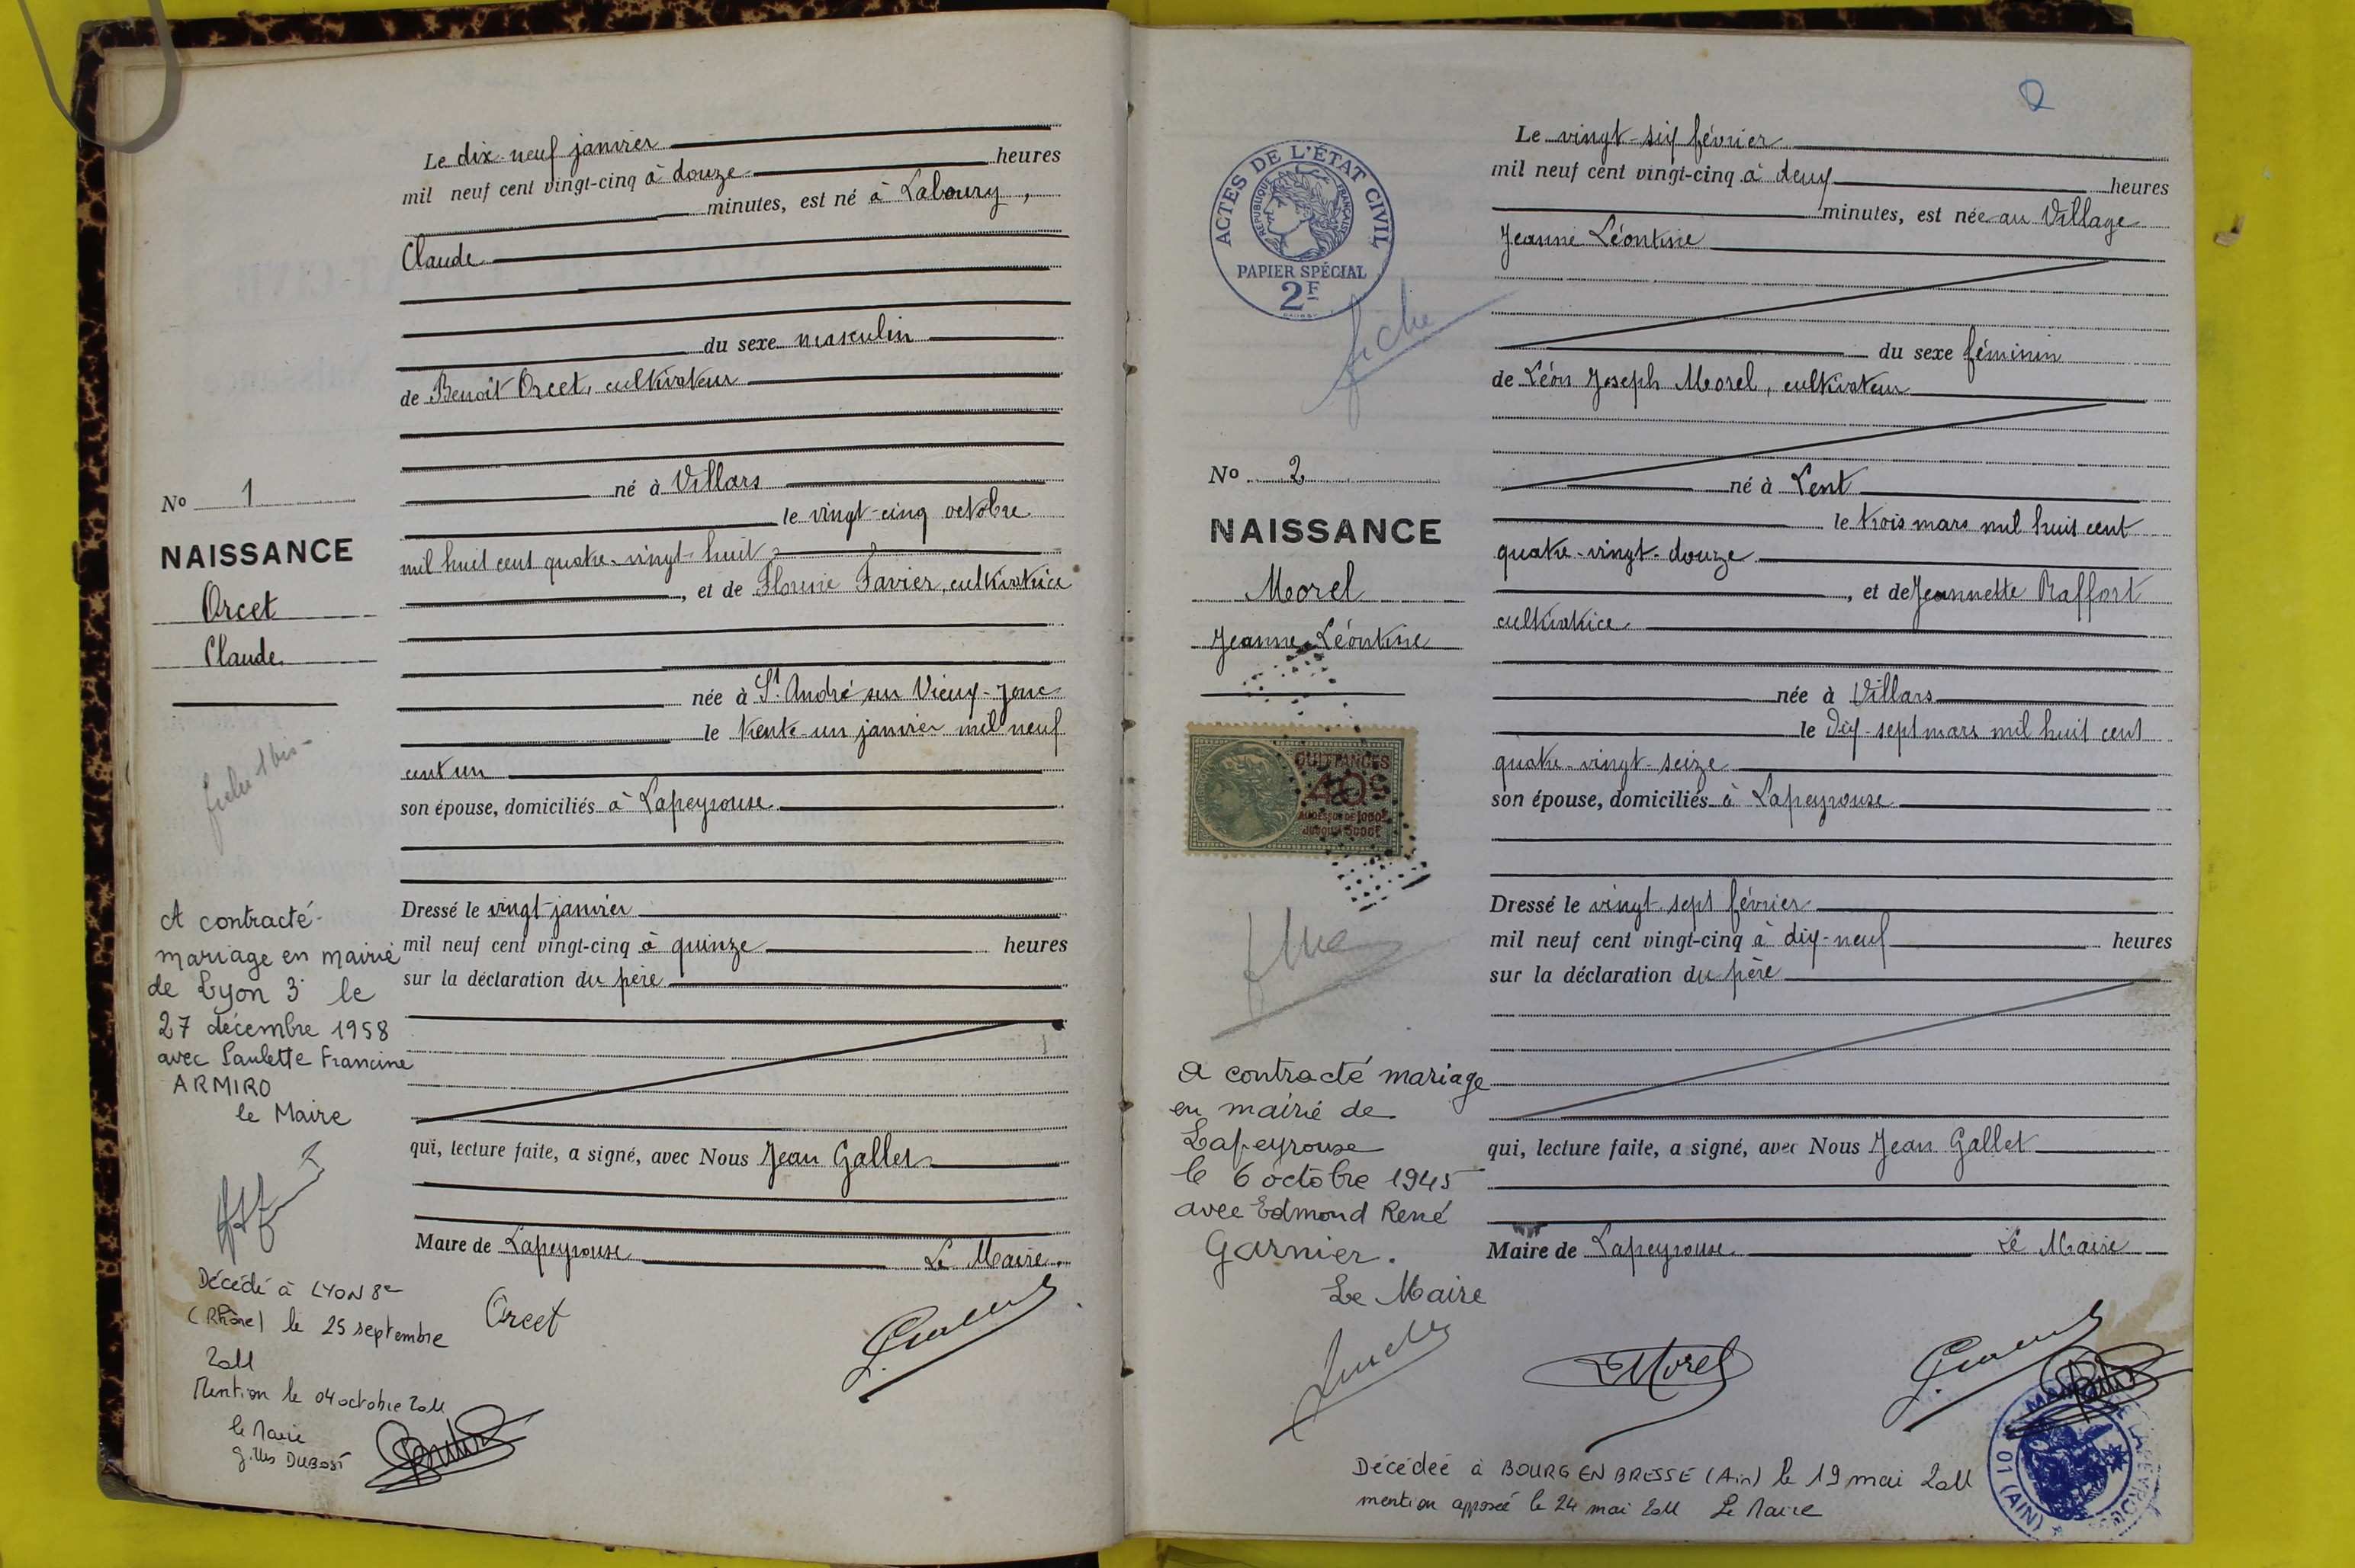 Le dix-neuf janvier
mil neuf cent vingt-cinq à douze heures
minutes, est né à Laboury,
Claude
du sexe masculin
de Benoît Orcet, cultivateur
né à Villars
le vingt-cinq octobre
mil huit cent quatre-vingt-huit
, et de Florine Favier, cultivatrice
née à St. André sur Vieux-Jonc
le trente-un janvier mil neuf
cent un
son épouse, domiciliés à Lapeyrouse
Dressé le vingt janvier
mil neuf cent vingt-cinq à quinze heures
sur la déclaration du père
qui, lecture faite, a signé, avec Nous Jean Gallet
Maire de Lapeyrouse Le Maire.
Orcet
No 1
NAISSANCE
Orcet
Claude
fiche 1 bis
A contracté
mariage en mairie
de Lyon 3e le
27 décembre 1958
avec Paulette Francine
ARMIRO
le Maire
Décédé à LYON 8e
(Rhône) le 25 septembre
2011
Mention le 04 octobre 2011
le Maire
Gilles DUBOST
2
Le vingt-six février
mil neuf cent vingt-cinq à deux heures
minutes, est née au Village
Jeanne Léontine
du sexe féminin
de Léon Joseph Morel, cultivateur
né à Lent
le trois mars mil huit cent
quatre-vingt-douze
, et de Jeannette Raffort
cultivatrice
née à Villars
le dix-sept mars mil huit cent
quatre-vingt-seize
son épouse, domiciliés à Lapeyrouse
Dressé le vingt-sept février
mil neuf cent vingt-cinq à dix-neuf heures
sur la déclaration du père
qui, lecture faite, a signé, avec Nous Jean Gallet
Maire de Lapeyrouse Le Maire
LMorel
ACTES DE L'ÉTAT CIVIL
RÉPUBLIQUE FRANÇAISE
PAPIER SPÉCIAL
2F
fiche
No 2
NAISSANCE
Morel
Jeanne Léontine
QUITTANCES
40c
AU DESSUS DE 1000F
JUSQU'A 3000F
a contracté mariage
en mairie de
Lapeyrouse
le 6 octobre 1945
avec Edmond René
Garnier.
Le Maire
Décédée à BOURG EN BRESSE (Ain) le 19 mai 2011
mention apposée le 24 mai 2011 Le Maire
MAIRIE DE LAPEYROUSE
01 (AIN)